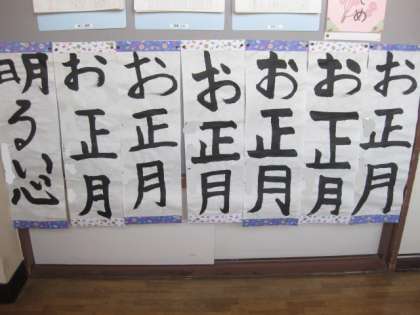 明るい心
お正月
お正月
お正月
お正月
お正月
お正月